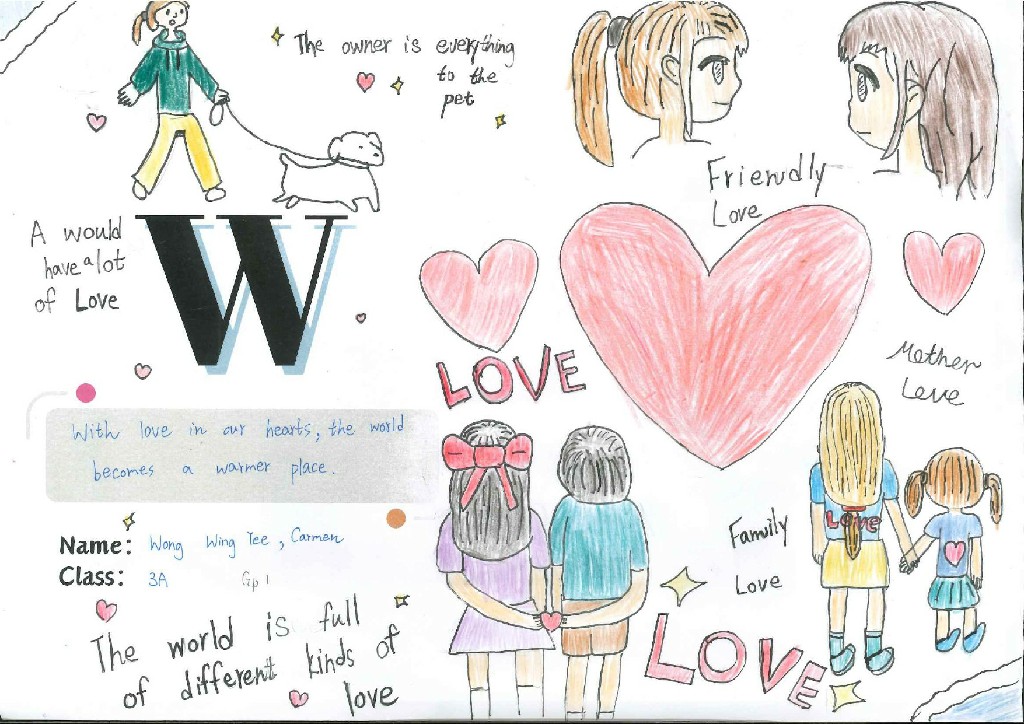 The owner is everything
to the
pet
Friendly
Love
A would
have a lot
of Love
W
LOVE
Mother
Love
With love in our hearts, the world
becomes a warmer place.
Name: Wong Wing Yee, Carmen
Class: 3A Gp 1
Family
Love
LOVE
LOVE
The world is full
of different kinds of
love